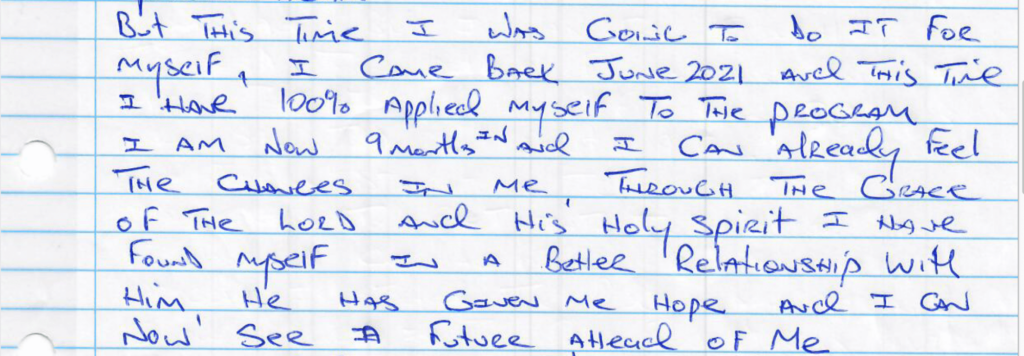 But This Time I was Going To do IT For
Myself, I Came Back June 2021 and This Time
I Have 100% Applied Myself To The program
I AM Now 9 months IN and I Can Already Feel
The Changes In Me, Through The Grace
of The Lord and His Holy Spirit I Have
Found Myself In A Better Relationship With
Him He Has Given Me Hope and I Can
Now See A Future Ahead of Me